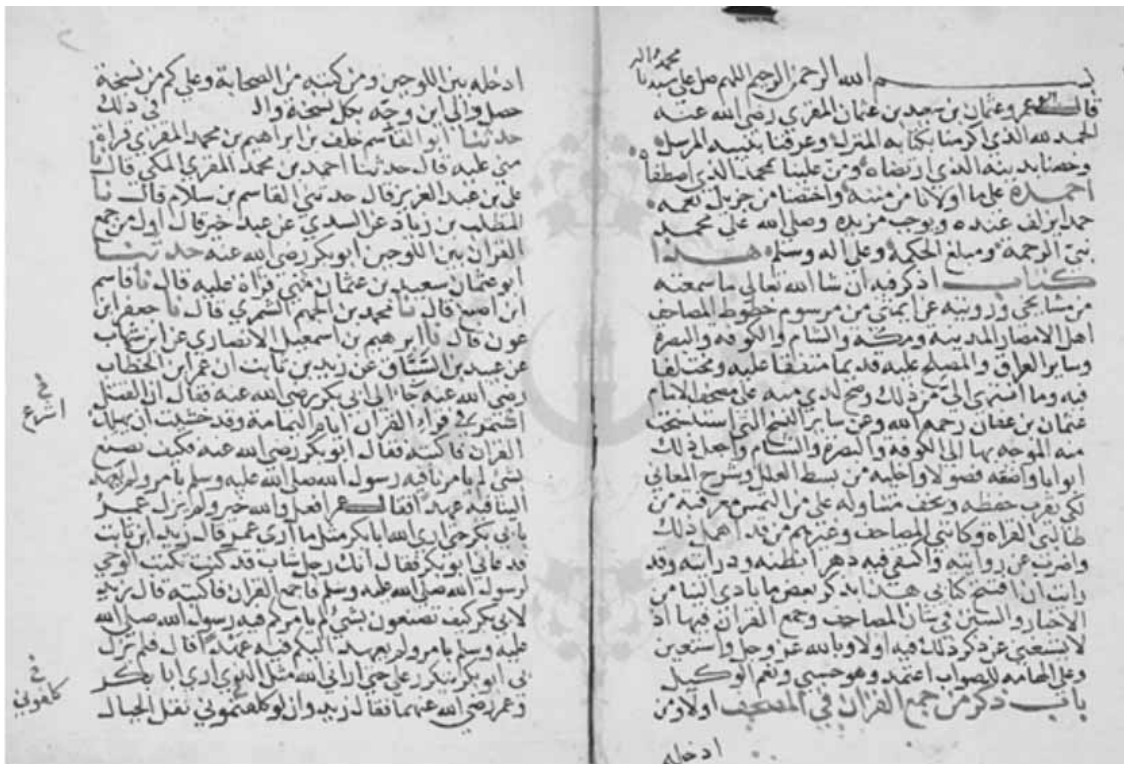 بسم الله الرحمن الرحيم اللهم صل على سيدنا محمد واله
قال ابو عمرو عثمان بن سعيد بن عثمان المقري رضي الله عنه
الحمد لله الذي اكرمنا بكتابه المنزل وعرفنا بنبيه المرسل
وخصنا بدينه الذي ارتضاه ومن علينا بمحمد الذي اصطفاه
احمده على ما اولانا من مننه واختصنا من جزيل نعمه
حمدا يزلف عنده ويوجب مزيده وصلى الله على محمد
نبي الرحمة ومبلغ الحكمة وعلى اله وسلم هذا
كتاب اذكر فيه ان شا الله تعالى ما سمعته
من مشايخي ورويته عن ايمتي من مرسوم خطوط المصاحف
اهل الامصار المدينة ومكة والشام والكوفة والبصرة
وساير العراق والمصطلح عليه قديما متفقا عليه ومختلفا
فيه وما انتهى الي من ذلك وصح لدي منه على مصحف الامام
عثمان بن عفان رحمه الله وعن ساير النسخ التي استنسخت
منه الموجه بها الى الكوفة والبصرة والشام واجعل ذلك
ابوابا واصنفه فصولا واخليه من بسط العلل وشرح المعاني
لكي يقرب حفظه ويخف متناوله على من التمس معرفته من
طالبي القراة وكاتبي المصاحف وغيرهم من قد اهمل ذلك
واضرب عن روايته واكتفى فيه دهرا بظنه ودرايته وقد
رايت ان افتتح كتابي هذا بذكر بعض ما تادى الينا من
الاخبار والسنن في شان المصاحف وجمع القران فيها اذ
لا يستغنى عن ذكر ذلك فيه اولا وبالله عز وجل واستعين
وعلى الهامه للصواب اعتمد وهو حسبي ونعم الوكيل
باب ذكر من جمع القران في المصحف اولا ومن
ادخله
ادخله بين اللوحين ومن كتبه من الصحابة وعلى كم من نسخة
حصل والى اين وجه بكل نسخة وال في ذلك
حدثنا ابو القاسم خلف بن ابراهيم بن محمد المقري قراة
مني عليه قال حدثنا احمد بن محمد المقري المكي قال نا
علي بن عبد العزيز قال حدثني القاسم بن سلام قال نا
المطلب بن زياد عن السدي عن عبد خير قال اول من جمع
القران بين اللوحين ابو بكر رضي الله عنه حدثنا
ابو عثمان سعيد بن عثمان مني قراة عليه قال نا قاسم
ابن اصبغ قال نا محمد بن الجهم الشمري قال نا جعفر ابن
عون قال نا ابرهيم بن اسمعيل الانصاري عن ابن شهاب
عن عبيد بن السباق عن زيد بن ثابت ان عمر ابن الخطاب
رضي الله عنه جا الى ابي بكر رضي الله عنه فقال ان القتل
اشتمر في قراء القران ايام اليمامة وقد خشيت ان يهلك
القران فاكتبه فقال ابو بكر رضي الله عنه فكيف تصنع
بشي لم يامرنا فيه رسول الله صلى الله عليه وسلم بامر ولم يعهد
الينا فيه عهدا فقال عمر افعل والله خير ولم يزل عمر
بابي بكر حتى اري الله ابا بكر مثل ما اري عمر قال زيد ابن ثابت
فدعاني ابو بكر فقال انك رجل شاب قد كنت تكتب الوحي
لرسول الله صلى الله عليه وسلم فاجمع القران فاكتبه قال زيد
لابي بكر كيف تصنعون بشي لم يامركم فيه رسول الله صلى الله
عليه وسلم بامر ولم يعهد اليكم فيه عهدا قال فلم يزل
بي ابو بكر حتى اراني الله مثل الذي اري ابا بكر
وعمر رضي الله عنهما فقال زيد وان لو كلفتموني نقل الجبال
اسرع
كلفوني